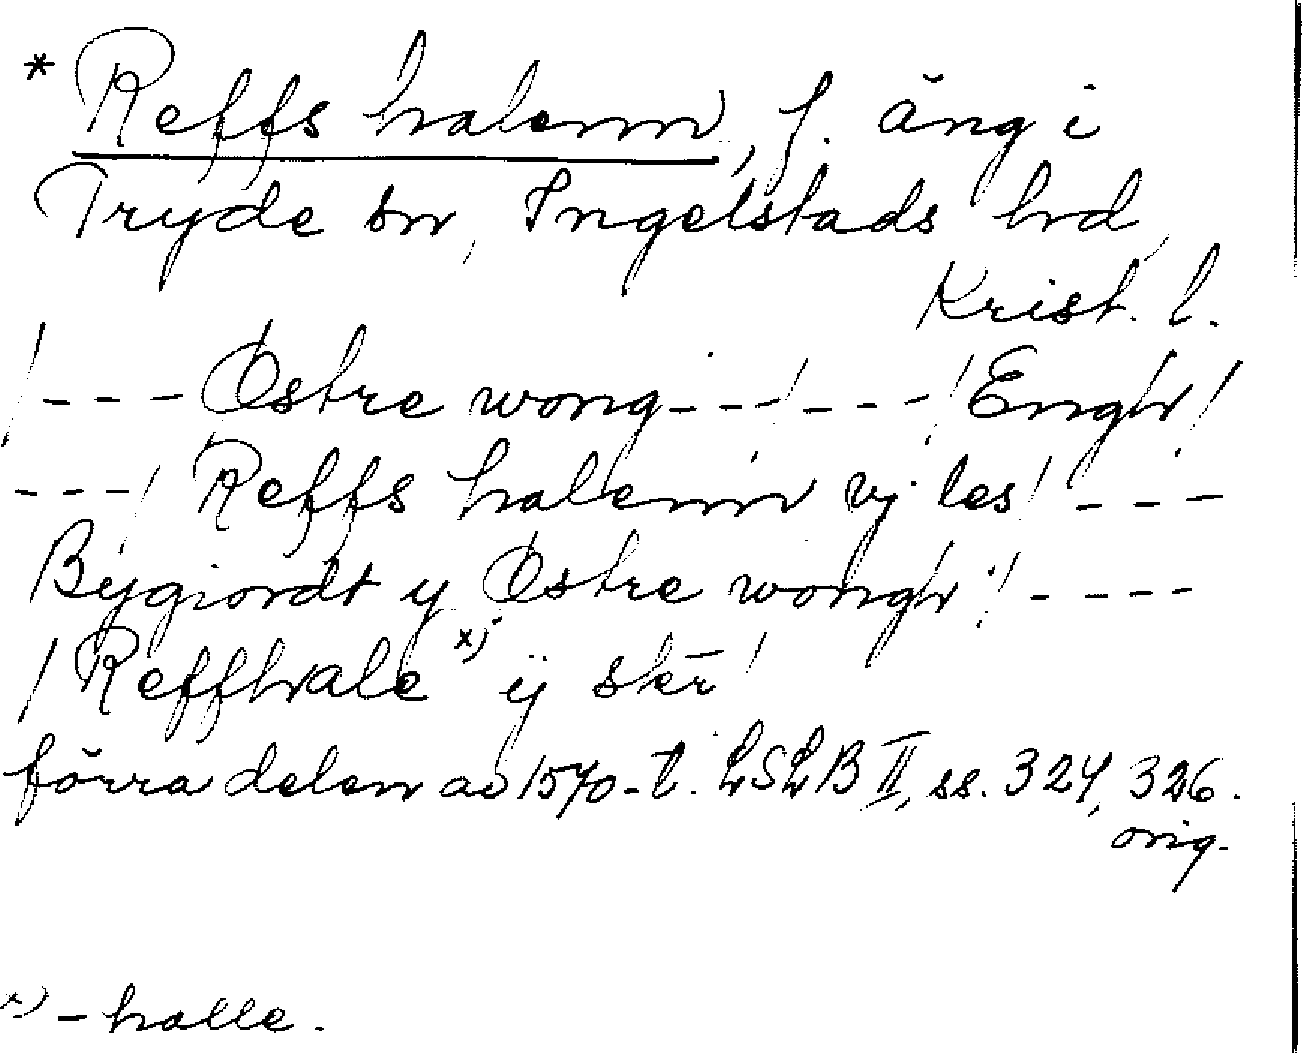 * Reffs halenn, f. äng i
Tryde sn, Ingelstads hrd,
Krist. l.
/--- Østre wong ---/---/ Engh /
---/ Reffs halenn vj les / ---
Bygiordt y Østre wongh / ----
/ Reffhale x) ij sker /
förra delen av 1570-t. LSLB II, ss. 324, 326.
orig.
x) - halle.